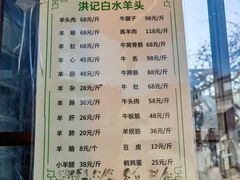 洪记白水羊头
羊头肉 68元/斤 牛腱子 98元/斤
羊眼 68元/斤 酱羊肉 118元/斤
羊肚 68元/斤 牛窝骨筋 68元/斤
羊心 45元/斤 牛舌 98元/斤
羊蹄 45元/斤 牛蹄筋 68元/斤
羊杂 38元/斤 牛肚 68元/斤
羊肝 38元/斤 牛头肉 58元/斤
羊肺 20元/斤 牛板筋 58元/斤
羊肠 38元/斤 羊拐筋 38元/斤
羊脑 9元/个 豆皮 12元/斤
小羊腿 38元/斤 鹌鹑蛋 25元/斤